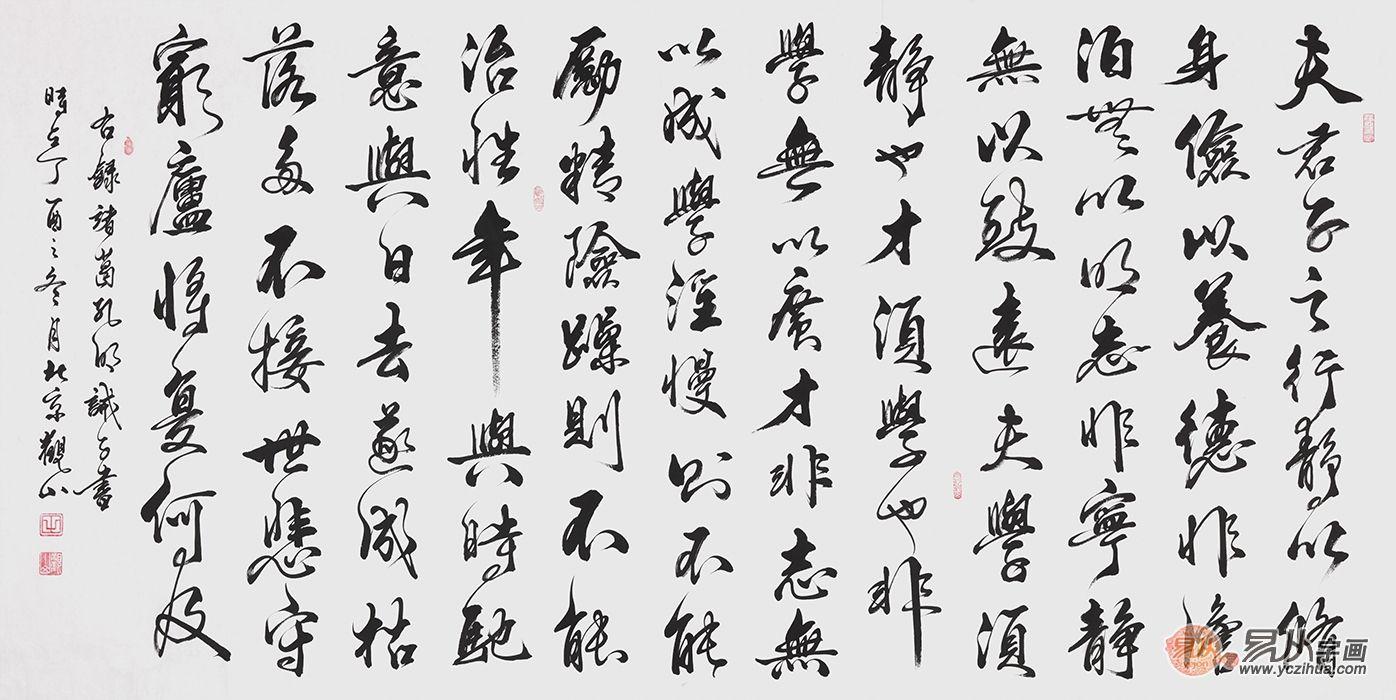 夫君子之行静以修
身儉以養德非澹
泊無以明志非寧静
無以致遠夫學須
静也才須學也非
學無以廣才非志無
以成學淫慢則不能
勵精險躁則不能
治性年與時馳
意與日去遂成枯
落多不接世悲守
窮廬將復何及
右錄諸葛孔明誡子書
時在丁酉之冬月北京觀山
易从字画
www.yczihua.com